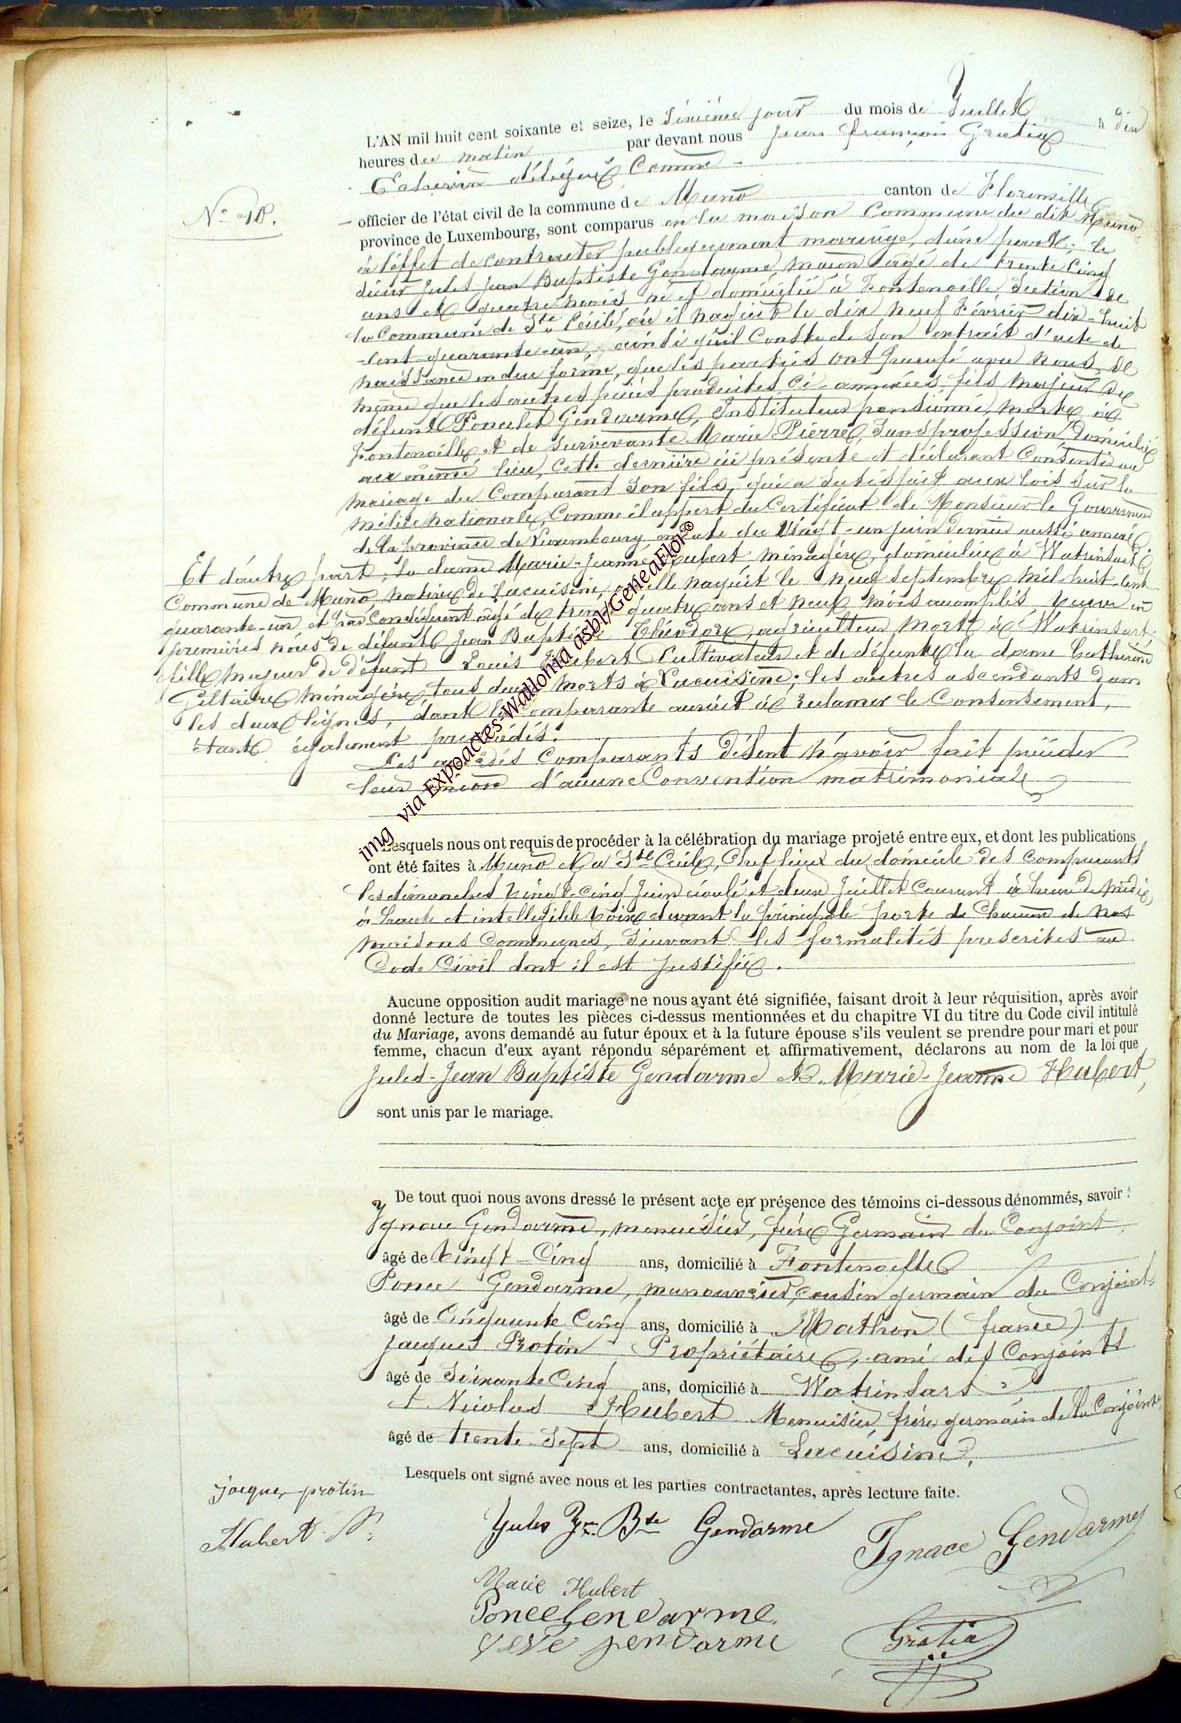 L'AN mil huit cent soixante et seize, le sixième jour du mois de Juillet à dix
heures du matin par devant nous Jean François Gratia
Echevin délégué Comme
N° 18.
officier de l'état civil de la commune de Muno canton de Florenville
province de Luxembourg, sont comparus en la maison Commune du dit Muno
à l'effet de contracter publiquement mariage, d'une part: le
sieur Jules Jean Baptiste Gendarme, maçon âgé de trente cinq
ans et quatre mois né et domicilié à Fontenoille Section de
la Commune de Ste Cécile, où il naquit le dix neuf Février dix-huit
-cent quarante-un, ainsi qu'il Conste de son extrait d'acte de
naissance en due forme, que les parties ont par nous, de
même que les autres pièces produites ci-annexées, fils majeur de
défunt Poncelet Gendarme, Instituteur pensionné, mort à
Fontenoille et de survivante Marie Pierre, sans profession, domiciliée
au même lieu, cette dernière ici présente et déclarant Consentir au
mariage du Comparant son fils, qui a satisfait aux lois sur la
milice nationale, Comme il appert du Certificat de Monsieur le Gouverneur
de la province de Luxembourg en date du vingt-un juin dernier aussi annexé
Et d'autre part, la dame Marie-Jeanne Hubert ménagère, domiciliée à Watrinsart
Commune de Muno, native de Lacuisine, où elle naquit le neuf septembre mil huit cent
quarante-un et par Conséquent âgée de trente quatre ans et neuf mois accomplis, veuve en
premières nôces de défunt Jean Baptiste Théodore, agriculteur mort à Watrinsart
fille majeur de défunt Louis Hubert Cultivateur et de défunte la dame Catherine
ménagère, tous deux morts à Lacuisine; les autres ascendants dans
les deux lignes, dont la Comparante aurait à réclamer le Consentement,
étant également prédécédés.
Les Comparants disent n'avoir fait précéder
leur union d'aucune Convention matrimoniale
img via Expoactes-Wallonia asbl/GeneaFlor©
Lesquels nous ont requis de procéder à la célébration du mariage projeté entre eux, et dont les publications
ont été faites à Muno et à Ste Cécile, Chef lieux du domicile des comparants
les dimanches vingt cinq Juin écoulé et deux Juillet courant à heure de midi,
à haute et intelligible voix, devant la principale porte de Chacune de nos
maisons Communes, suivant les formalités prescrites au
Code Civil dont il est justifié.
Aucune opposition audit mariage ne nous ayant été signifiée, faisant droit à leur réquisition, après avoir
donné lecture de toutes les pièces ci-dessus mentionnées et du chapitre VI du titre du Code civil intitulé
du Mariage, avons demandé au futur époux et à la future épouse s'ils veulent se prendre pour mari et pour
femme, chacun d'eux ayant répondu séparément et affirmativement, déclarons au nom de la loi que
Jules-Jean Baptiste Gendarme et Marie-Jeanne Hubert,
sont unis par le mariage.
De tout quoi nous avons dressé le présent acte en présence des témoins ci-dessous dénommés, savoir :
Ygnace Gendarme, menuisier, frère Germain du Conjoint
âgé de Vingt-Cinq ans, domicilié à Fontenoille
Ponce Gendarme, manouvrier, cousin germain du Conjoint
âgé de Cinquante Cinq ans, domicilié à Mathon (france)
Jacques Protin Propriétaire, ami des Conjoints
âgé de Soixante Cinq ans, domicilié à Watrinsart
et Nicolas Hubert Menuisier frère germain de la Conjointe
âgé de trente-Sept ans, domicilié à Lacuisine.
Lesquels ont signé avec nous et les parties contractantes, après lecture faite.
jacque protin
Jules Jn Bte Gendarme
Hubert N.
Ignace Gendarme
Marie Hubert
Ponce Gendarme
veve gendarme
Gratia